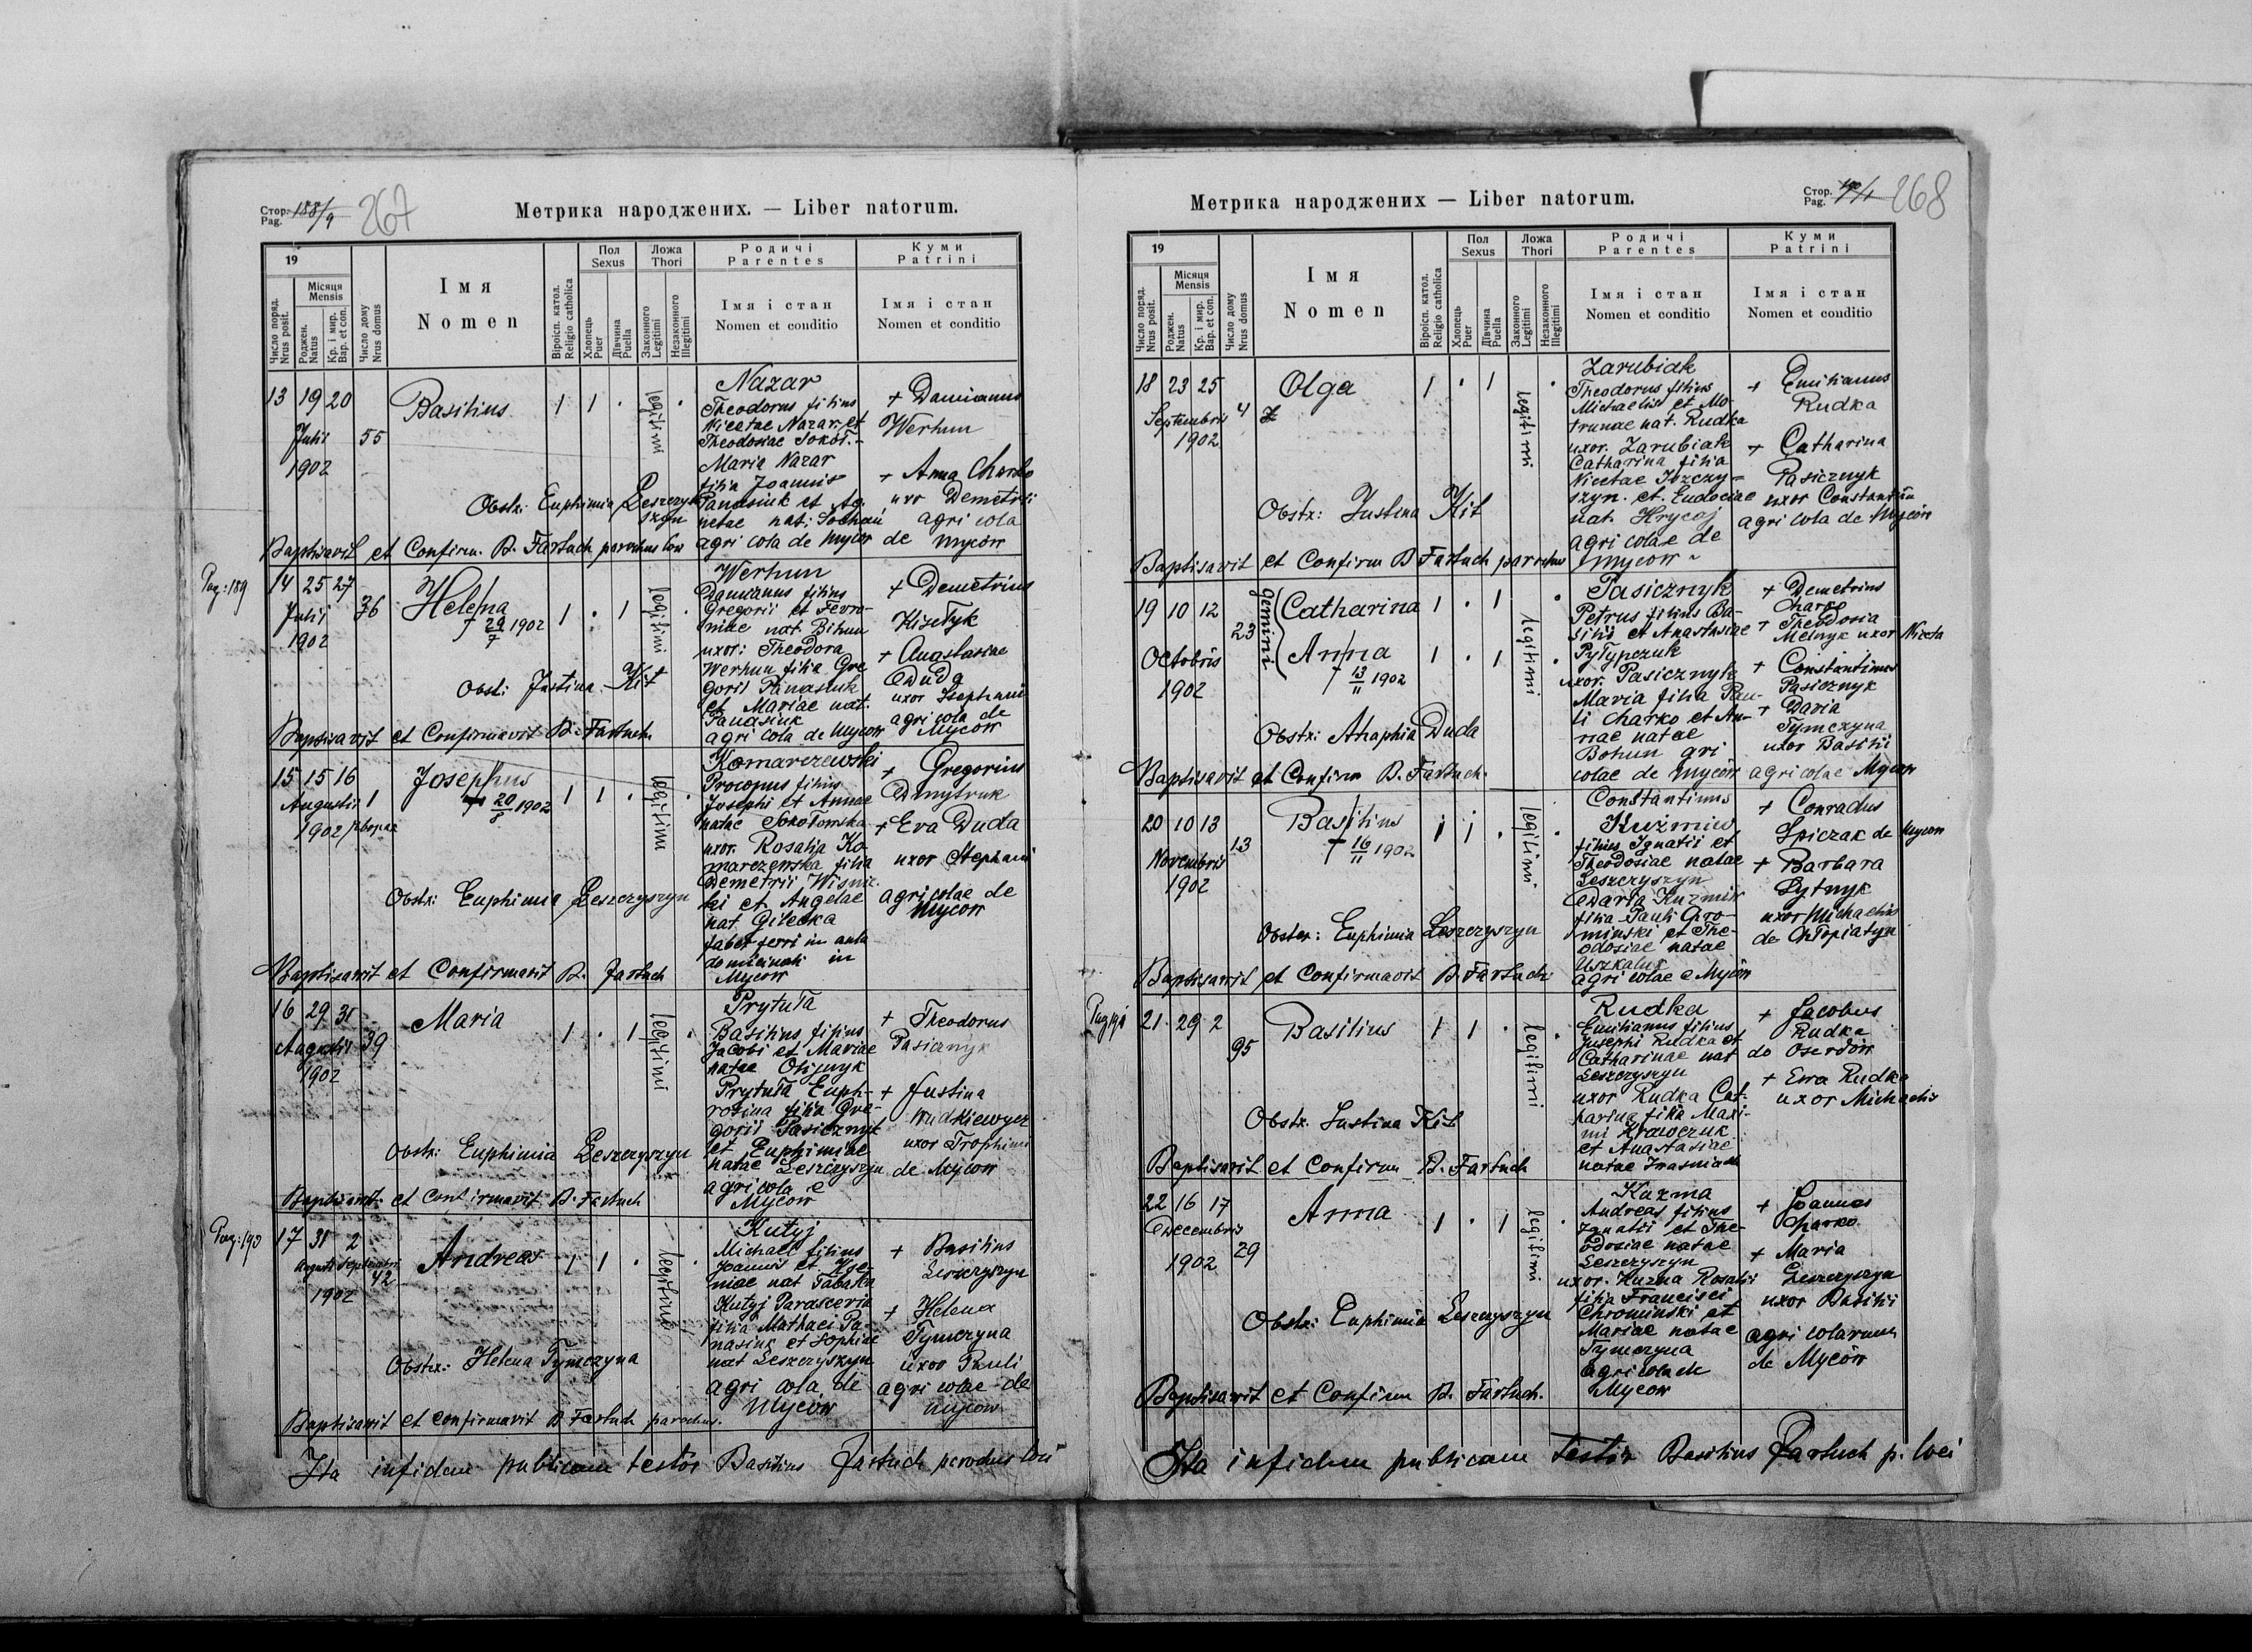 Стор. Pag. 188/9 267
Метрика народжених. — Liber natorum.
19
Число поряд. Nrus posit.
Місяця Mensis
Роджен. Natus
Кр. і мир. Bap. et con.
Число дому Nrus domus
Імя
Nomen
Віроісп. катол. Religio catholica
Пол Sexus
Хлопець Puer
Дівчина Puella
Ложа Thori
Законного Legitimi
Незаконного Illegitimi
Родичі
Parentes
Імя і стан
Nomen et conditio
Куми
Patrini
Імя і стан
Nomen et conditio
13 19 20
Julii 55
1902
Basilius 1 1 . legitimi .
Nazar
Theodorus filius
Nicetae Nazar et
Theodosiae Sokoł.-
Maria Nazar
filia Joannis
Panasiuk et Ag-
netae nat.
agricola de Mycow
+ Damianus
Werhun
+ Anna Charko
uxor Demetrii
agricola
de Mycow
Obstr: Euphimia Leszczyszyn
Baptisavit et Confirm. B. Fartuch parochus loci
Pag: 189
14 25 27
Julii 36
1902
Helena 1 . 1 legitimi .
† 29/7 1902
Werhun
Damianus filius
Gregorii et Fevro-
niae nat. Bihun
uxor: Theodora
Werhun filia Gre
gorii Panasiuk
et Mariae nat.
Panasiuk
agricola de Mycow
+ Demetrius
Kizełyk
+ Anastasiae
Duda
uxor Stephani
agricola de
Mycow
Obst: Justina Kit
Baptisavit et Confirmavit B. Fartuch
15 15 16
Augusti 1
1902
Josephus 1 1 . legitimi .
† 20/8 1902
Komarczewski
Procopus filius
Josephi et Annae
natae Sokołowska
uxor. Rosalia Ko
marczewska filia
Demetrii Wisnic
ki et Angelae
nat Gilecka
faber ferri in aula
dominicali in
Mycow
+ Gregorius
Dmytruk
+ Eva Duda
uxor Stephani
agricolae de
Mycow
Obstr: Euphimia Leszczyszyn
Baptisavit et Confirmavit B. Fartuch
16 29 31
Augusti 39
1902
Maria 1 . 1 legitimi .
Prytuła
Basilius filius
Jacobi et Mariae
natae Olijnyk
Prytuła Euph-
rosina filia Gre-
gorii Pasicznyk
et Euphimiae
natae Leszczyszyn
agricola e
Mycow
+ Theodorus
Pasicznyk
+ Justina
Wudkiewycz
uxor Trophimi
de Mycow
Obstr: Euphimia Leszczyszyn
Baptisavit et confirmavit B. Fartuch
Pag: 190
17 31 2
Augusti Septembri
42
1902
Andreas 1 1 . legitimi .
Kutyj
Michael filius
Joannis et Xe-
niae nat Tabaka
Kutyj Parascevia
filia Mathaei Pa-
nasiuk et Sophiae
nat Leszczyszyn
agricola de
Mycow
+ Basilius
Leszczyszyn
+ Helena
Tymczyna
uxor Pauli
agricolae de
Mycow
Obstr: Helena Tymczyna
Baptisavit et confirmavit B Fartuch parochus.
Ita in fidem publicam testor Basilius Fartuch parochus loci
Метрика народжених — Liber natorum.
Стор. Pag. 268
19
Число поряд. Nrus posit.
Місяця Mensis
Роджен. Natus
Кр. і мир. Bap. et con.
Число дому Nrus domus
Імя
Nomen
Віроісп. катол. Religio catholica
Пол Sexus
Хлопець Puer
Дівчина Puella
Ложа Thori
Законного Legitimi
Незаконного Illegitimi
Родичі
Parentes
Імя і стан
Nomen et conditio
Куми
Patrini
Імя і стан
Nomen et conditio
18 23 25
Septembris 4
1902
Olga 1 . 1 legitimi .
Zarubiak
Theodorus filius
Michaelis et Mo-
trunae nat. Rudka
uxor. Zarubiak
Catharina filia
Nicetae Iszczy-
szyn. et. Eudociae
nat. Hrycaj
agricolae de
Mycow
+ Emilianus
Rudka
+ Catharina
Pasicznyk
uxor Constantin
agricola de Mycow
Obstr: Justina Kit
Baptisavit et Confirm B Fartuch parochus
19 10 12
23
Octobris
1902
gemini
Catharina 1 . 1 .
Anna 1 . 1 .
† 13/11 1902
legitimi
Pasicznyk
Petrus filius Ba-
silii et Anastasiae
Pyłypczuk
uxor. Pasicznyk
Maria filia Pau-
li Charko et An-
nae natae
Bohun gri
colae de Mycow
+ Demetrius
Charko
+ Theodosia
Melnyk uxor Niceta
+ Constantinus
Pasicznyk
+ Daria
Tymczyna
uxor Basilii
agricolae Mycow
Obstr: Ahaphia Duda
Baptisavit et Confirm B. Fartuch.
20 10 13
Novembris 13
1902
Basilius 1 1 . legitimi .
† 16/11 1902
Constantinus
Kuźmiw
filius Ignatii et
Theodosiae natae
Leszczyszyn
Daria Kuzmiw
filia Pauli Chro-
minski et The-
odosiae natae
Uszkaluk
agricolae e Mycow
+ Conradus
Spiczak de Mycow
+ Barbara
Sytnyk
uxor Michaelis
de Chłopiatyn
Obster: Euphimia Leszczyszyn
Baptisavit et Confirmavit B. Fartuch
Pag 191
21 29 2
95
Basilius 1 1 . legitimi .
Rudka
Emilianus filius
Josephi Rudka et
Catharinae nat
Leszczyszyn
uxor Rudka Cat-
harina filia Maxi-
mi Krawczuk
et Anastasiae
natae
+ Jacobus
Rudka
do Oserdow
+ Ewa Rudka
uxor Michaelis
Obstr. Justina Kit
Baptisavit et Confirm B. Fartuch
22 16 17
Decembris
29
1902
Anna 1 . 1 legitimi .
Kuzma
Andreas filius
Ignatii et The-
odosiae natae
Leszczyszyn
uxor. Kuzma Rosalii
filia Francisci
Chrominski et
Mariae natae
Tymczyna
agricola de
Mycow
+ Joannes
Charko
+ Maria
Leszczyszyn
uxor Basilii
agricolarum
de Mycow
Obstr: Euphimia Leszczyszyn
Baptisavit et Confirm B. Fartuch.
Ita in fidem publicam testor Basilius Fartuch p. loci